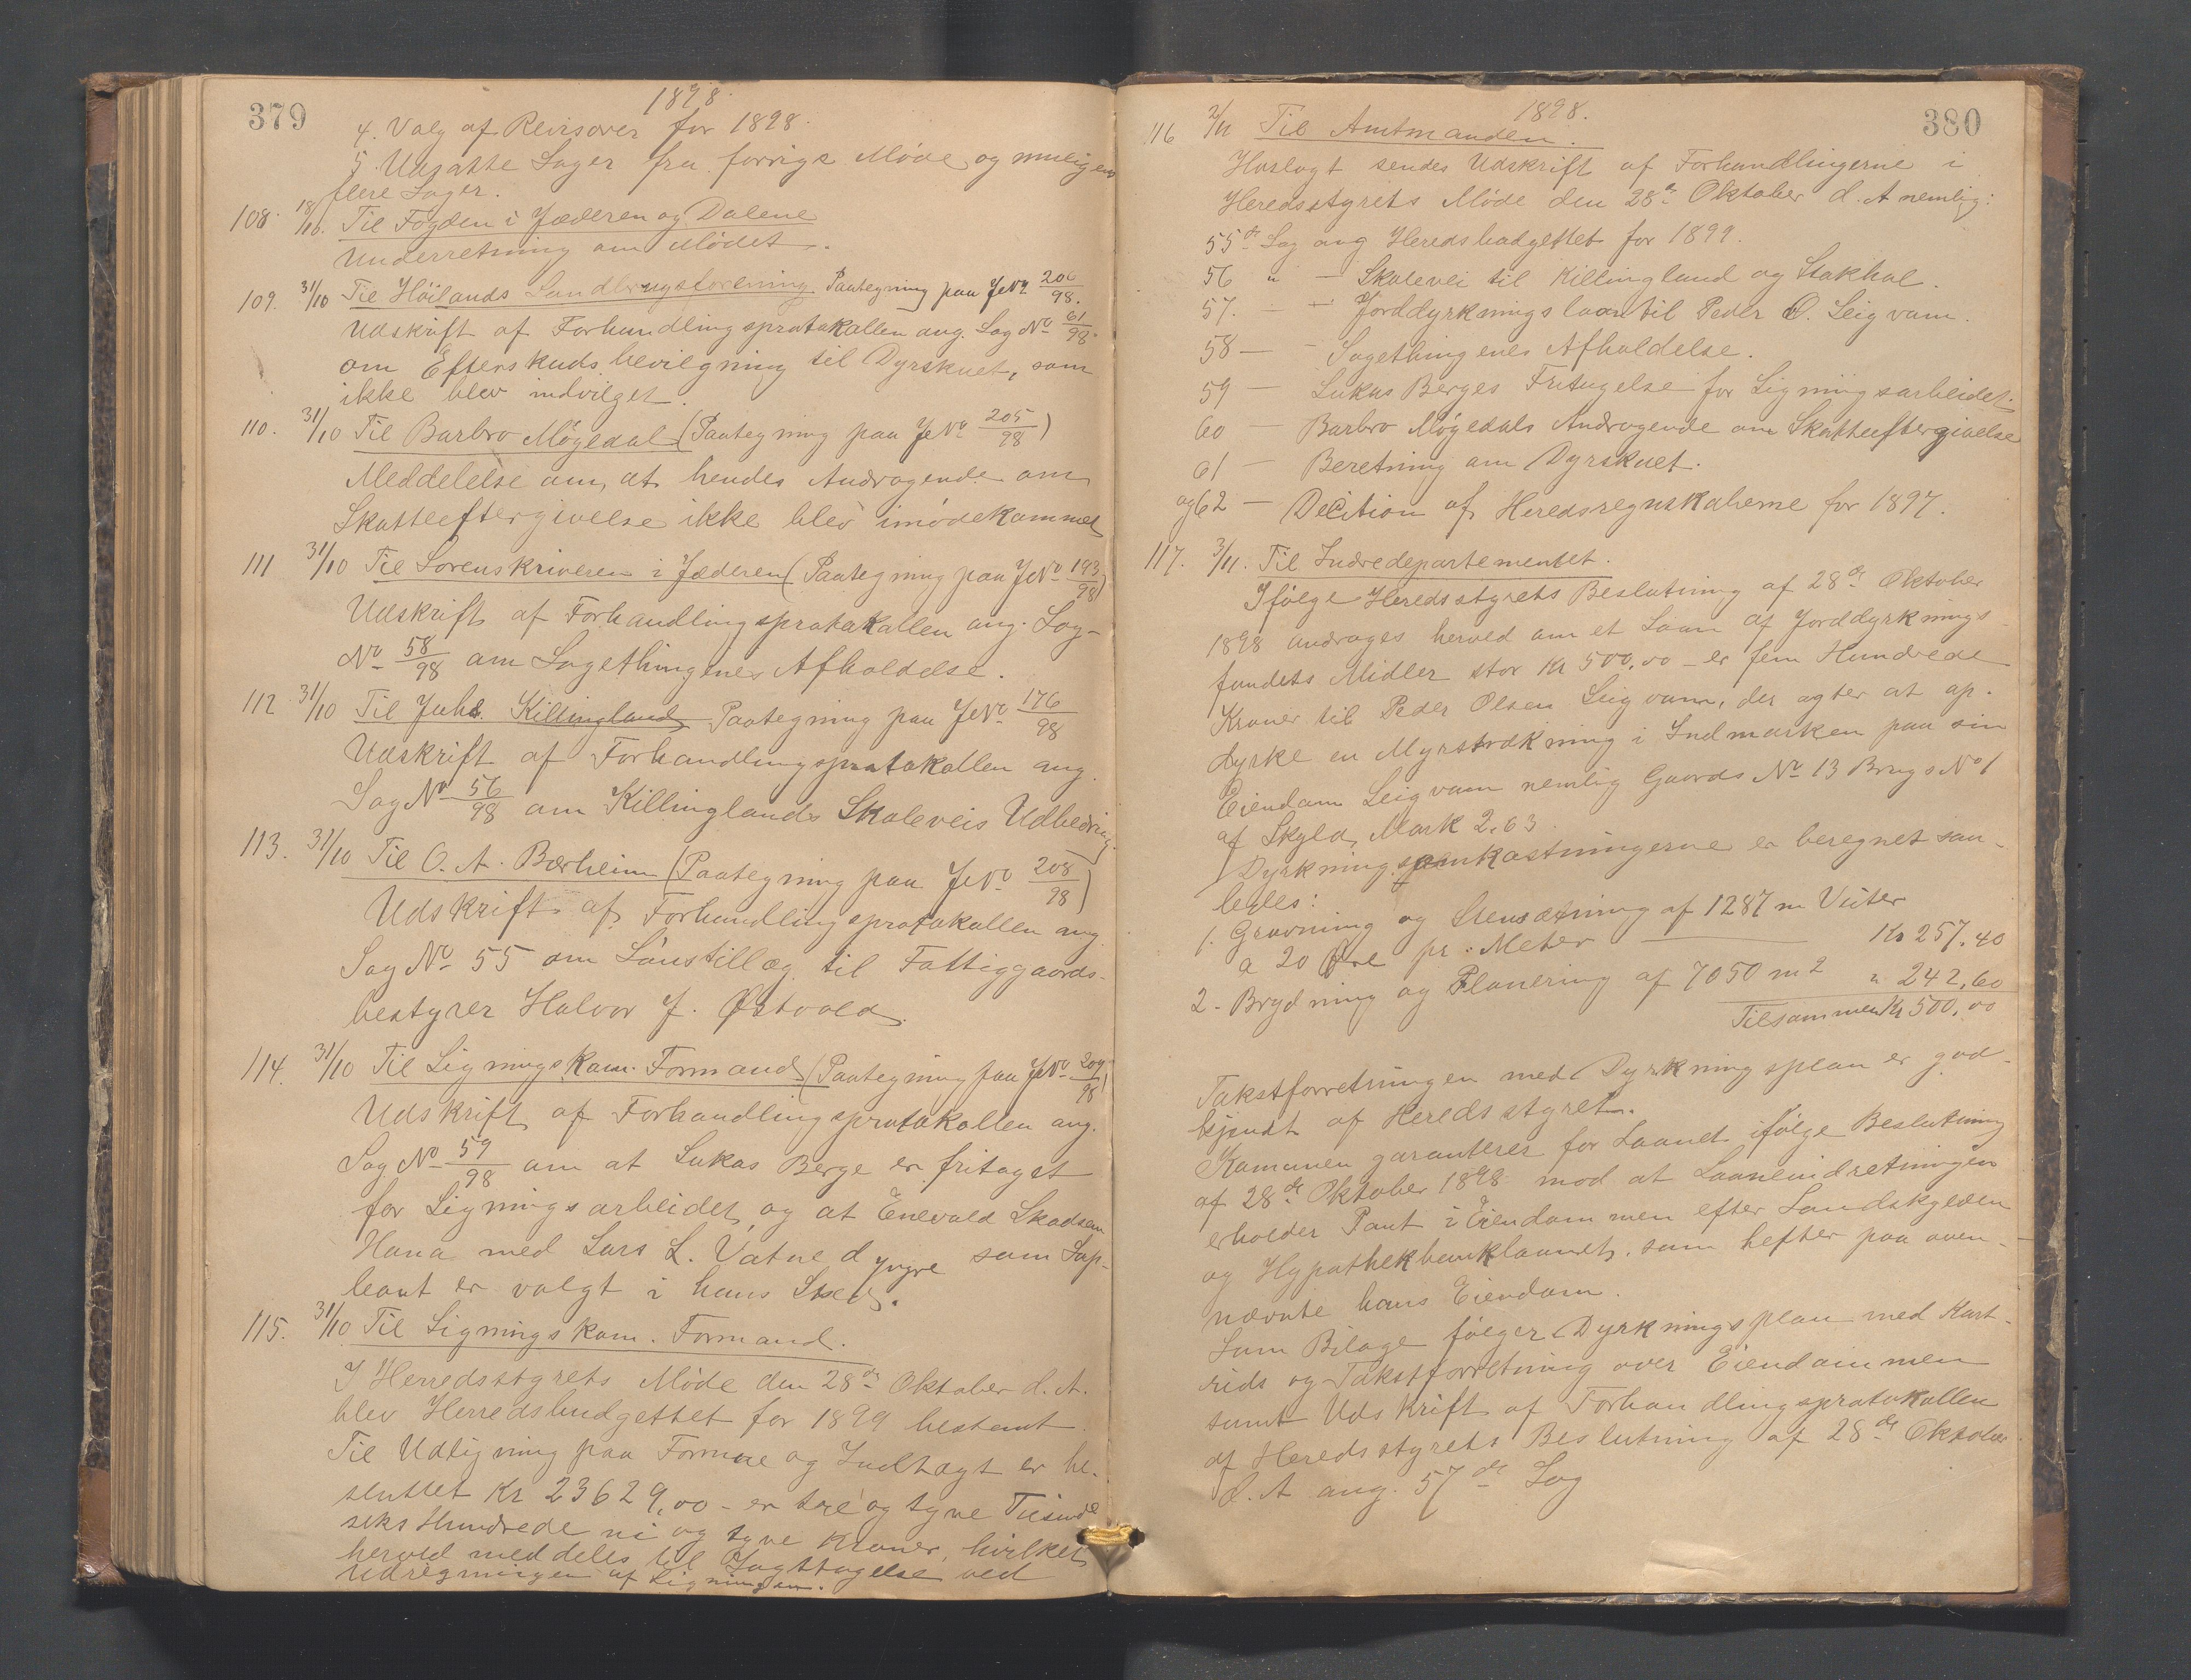 379
1898.
4. Valg af Revisorer for 1898.
5. Udsatte Sager fra forrige Møde og muligens
flere Sager.
108. 18/10. Til Fogden i Jæderen og Dalene
Underretning om Mødet.
109. 31/10 Til Höilands Landbrugsforening. Paategning paa JNo 206/98.
Udskrift af Forhandlingsprotokollen ang. Sag No 61/98.
om Efterskudsbevilgning til Dyrskuet, som
ikke blev indvilget.
110. 31/10 Til Barbro Møgedal (Paategning paa JNo 205/98)
Meddelelse om, at hendes Andragende om
Skatteeftergivelse ikke blev imødekommet
111 31/10 Til Sorenskriveren i Jæderen (Paategning paa JNo 193/98)
Udskrift af Forhandlingsprotokollen ang. Sag
No 58/98 om Sagethingenes Afholdelse.
112 31/10 Til Johs. Killingland Paategning paa JNo 176/98
Udskrift af Forhandlingsprotokollen ang.
Sag No 56/98 om Killinglands Skoleveis Udbedring.
113. 31/10 Til O. A. Bærheim (Paategning paa JNo 208/98)
Udskrift af Forhandlingsprotokollen ang
Sag No 55 om Lönstillæg til Fattiggaards-
bestyrer Halvor J. Østvold.
114. 31/10 Til Ligningskom. Formand (Paategning paa JNo 209/98)
Udskrift af Forhandlingsprotokollen ang.
Sag No 59/98 om at Lukas Berge er fritaget
for Ligningsarbeidet og at Enevald Skadsem
Hana med Lars L. Vatne d yngre som Sup-
leant er valgt i hans Sted.
115. 31/10 Til Ligningskom. Formand.
I Herredsstyrets Møde den 28de Oktober d. A.
blev Herredsbudgettet for 1899 bestemt.
Til Udligning paa Formue og Indtægt er be-
sluttet Kr 23629,00 - er tre og tyve Tusinde
seks Hundrede ni og tyve Kroner, hvilket
herved meddeles til Iagttagelse ved
Udregningen af Ligningen.
380
1898.
116 2/11 Til Amtmanden.
Hoslagt sendes Udskrift af Forhandlingerne i
Heredsstyrets Møde den 28de Oktober d. A nemlig:
55de Sag ang Heredsbudgettet for 1899.
56 " — Skolevei til Killingland og Stokhol.
57. — — Jorddyrkningslaan til Peder O. Leigvam.
58 — — Sagethingenes Afholdelse.
59 — Lukas Berges Fritagelse for Ligningsarbeidet.
60 — Barbro Møgedals Andragende om Skatteeftergivelse
61 — Beretning om Dyrskuet.
og 62 — Decition af Heredsregnskaberne for 1897.
117. 3/11. Til Indredepartementet.
Ifølge Heredsstyrets Beslutning af 28de Oktober
1898 andrages herved om et Laan af Jorddyrknings-
fondets Midler stor Kr 500,00 - er fem Hundrede
Kroner til Peder Olsen Leigvam, der agter at op-
dyrke en Myrstrækning i Indmarken paa sin
Eiendom Leigvam nemlig Gaards No 13 Brugs No 1
af Skyld, Mark 2,63.
Dyrkningsomkostningerne er beregnet saa-
ledes:
1. Gravning og Stensætning af 1287 m Viiter
a 20 Øre pr: Meter — Kr 257.40
2 - Brydning og Planering af 7050 m2 " 242,60
Tilsammen Kr 500,00
Takstforretningen med Dyrkningsplan er god-
kjendt af Heredsstyret.
Komunen garanterer for Laanet ifølge Beslutning
af 28de Oktober 1898 mod at Laaneindretningen
erholder Pant i Eiendommen efter Landskylden
og Hypothekbanklaanet, som hefter paa oven-
nævnte hans Eiendom.
Som Bilage følger Dyrkningsplan med Kart-
rids og Takstforretning over Eiendommen
samt Udskrift af Forhandlingsprotokollen
af Heredsstyrets Beslutning af 28de Oktober
d. A ang. 57de Sag